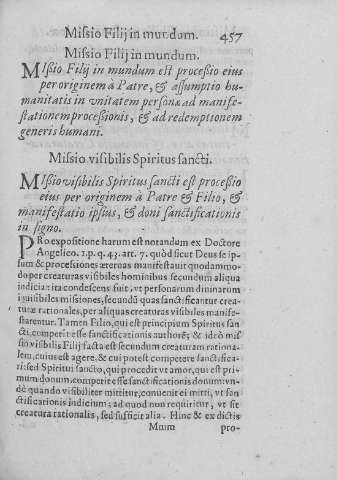 Miſsio Filij in mundum. 457
Miſsio Filij in mundum.
MIſsio Filij in mundum est proceſsio eius
per originem à Patre, & aſſumptio hu-
manitatis in vnitatem personæ ad manife-
stationem proceſsionis, & ad redemptionem
generis humani.
Miſsio viſibilis Spiritus ſancti.
MIſsio viſibilis Spiritus ſancti est proceſsio
eius per originem à Patre & Filio, &
manifestatio ipſius, & doni ſanctificationis
in ſigno.
PRo expoſitione harum eſt notandum ex Doctore
Angelico. 1. p. q. 43. art. 7. quòd ſicut Deus ſe ip-
ſum & proceſsiones æternas manifeſtauit quodammo-
do per creaturas viſibiles hominibus ſecundum aliqua
indicia: ita condescens fuit, vt perſonarum diuinarum
inuiſibiles miſsiones, ſecundũ quas ſanctificantur crea-
turæ rationales, per aliquas creaturas viſibiles manife-
ſtarentur. Tamen Filio, qui eſt principium Spiritus ſan
cti, competit eſſe ſanctificationis authorẽ; & ideò miſ-
ſio viſibilis Filij facta eſt ſecundum creaturam rationa-
lem, cuius eſt agere, & cui poteſt competere ſanctifica-
ri: ſed Spiritui ſancto, qui procedit vt amor, qui eſt pri-
mum donum, competit eſſe ſanctificationis donum: vn-
dè quando viſibiliter mittitur, conuenit ei mitti, vt ſan
ctificationis indicium; ad quod non requiritur, vt ſit
creatura rationalis, ſed ſufficit alia. Hinc & ex dictis
Mmm pro-